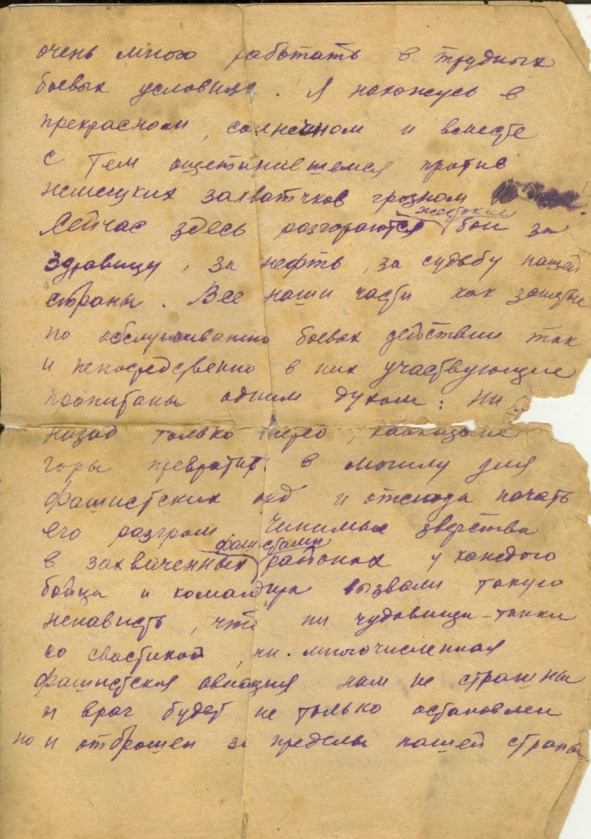 очень много работать в трудных
боевых условиях. Я нахожусь в
прекрасном, солнечном и вместе
с тем ощетинившемся против
немецких захватчков грозном
Сейчас здесь разгораются жестокие бои за
здравицу, за нефть, за судьбу нашей
страны. Все наши части как занятые
по обслуживанию боевых действий так
и непосредственно в них участвующие
пропитаны одним духом: Ни
назад только вперед, кавказские
горы превратить в могилу для
фашистских орд и отсюда начать
его разгром Чинимые зверства
в захваченных фашистами районах у каждого
бойца и командира вызвали такую
ненависть, что ни чудовища-танки
со свастикой, ни многочисленная
фашистская авиация нам не страшны
и враг будет не только остановлен
но и отброшен за пределы нашей страны